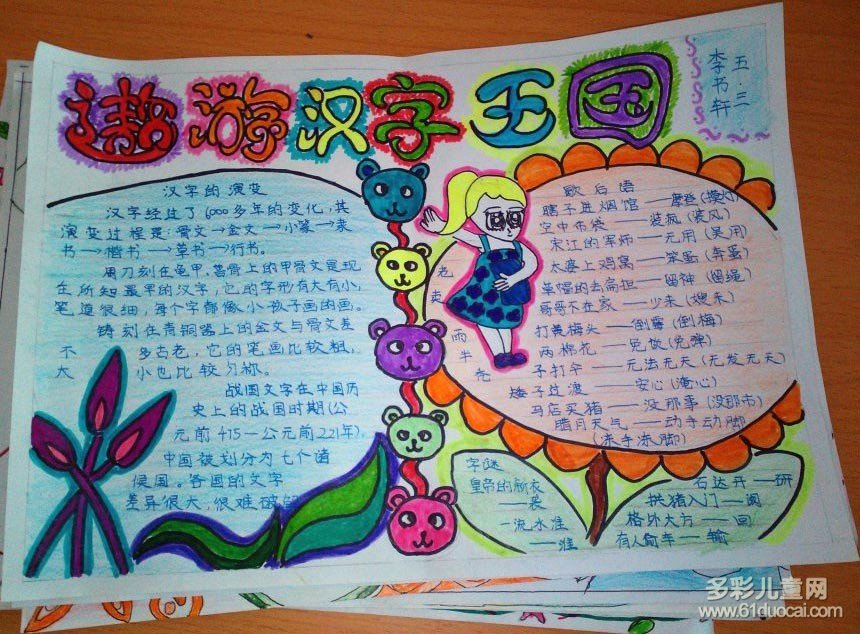 遨游汉字王国
五·三
李书轩
汉字的演变
汉字经过了6000多年的变化,其
演变过程是:骨文→金文→小篆→隶
书→楷书→草书→行书。
用刀刻在龟甲、兽骨上的甲骨文是现
在所知最早的汉字,它的字形有大有小,
笔道很细,每个字都像小孩子画的画。
铸刻在青铜器上的金文与骨文差
不多古老,它的笔画比较粗,
大小也比较匀称。
战国文字在中国历
史上的战国时期(公
元前475—公元前221年)
中国被划分为七个诸
侯国。各国的文字
差异很大,很难破
歇后语
瞎子进烟馆——摩登(摸灯)
空中布袋——装疯(装风)
宋江的军师——无用(吴用)
太婆上鸡窝——笨蛋(奔蛋)
单唱的去扁担——留神(留绳)
哥哥不在家——少来(嫂来)
打黄梅头——倒霉(倒梅)
两棉花——免谈(免弹)
子打伞——无法无天(无发无天)
矮子过渡——安心(淹心)
马店买猪——没那事(没那市)
腊月天气——动手动脚
(冻手冻脚)
老
卖
雨
半
尧
字谜
皇帝的新衣
——袭
一流水准
——淮
石达开——研
拱猪入门——阂
格外大方——回
有人偷车——输
多彩儿童网
www.61duocai.com